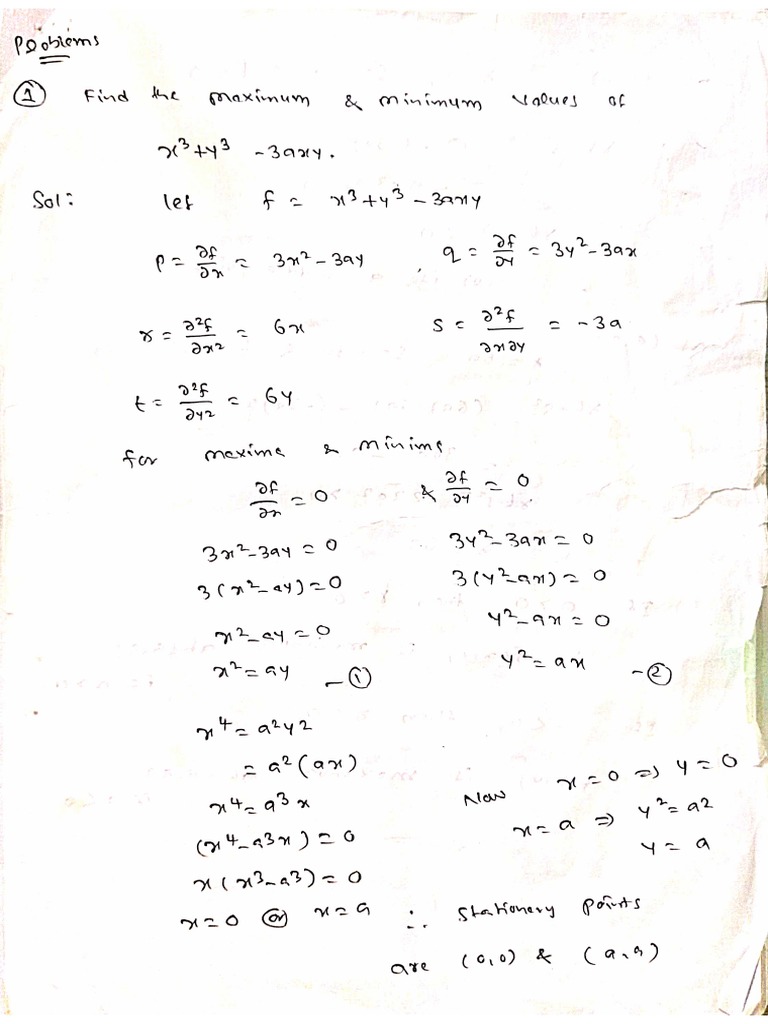 Problems
① Find the maximum & minimum values of
x³+y³ -3axy.
Sol: let f = x³+y³-3axy
p = ∂f/∂x = 3x²-3ay , q = ∂f/∂y = 3y²-3ax
r = ∂²f/∂x² = 6x s = ∂²f/∂x∂y = -3a
t = ∂²f/∂y² = 6y
for maxima & minima
∂f/∂x = 0 & ∂f/∂y = 0.
3x²-3ay = 0 3y²-3ax = 0
3(x²-ay) = 0 3(y²-ax) = 0
x²-ay = 0 y²-ax = 0
x² = ay -① y² = ax -②
x⁴ = a²y²
= a²(ax)
x⁴ = a³x
(x⁴-a³x) = 0
x(x³-a³) = 0
x=0 or x=a
Now x=0 ⇒ y=0
x=a ⇒ y²=a²
y=a
∴ stationery points
are (0,0) & (a,a)